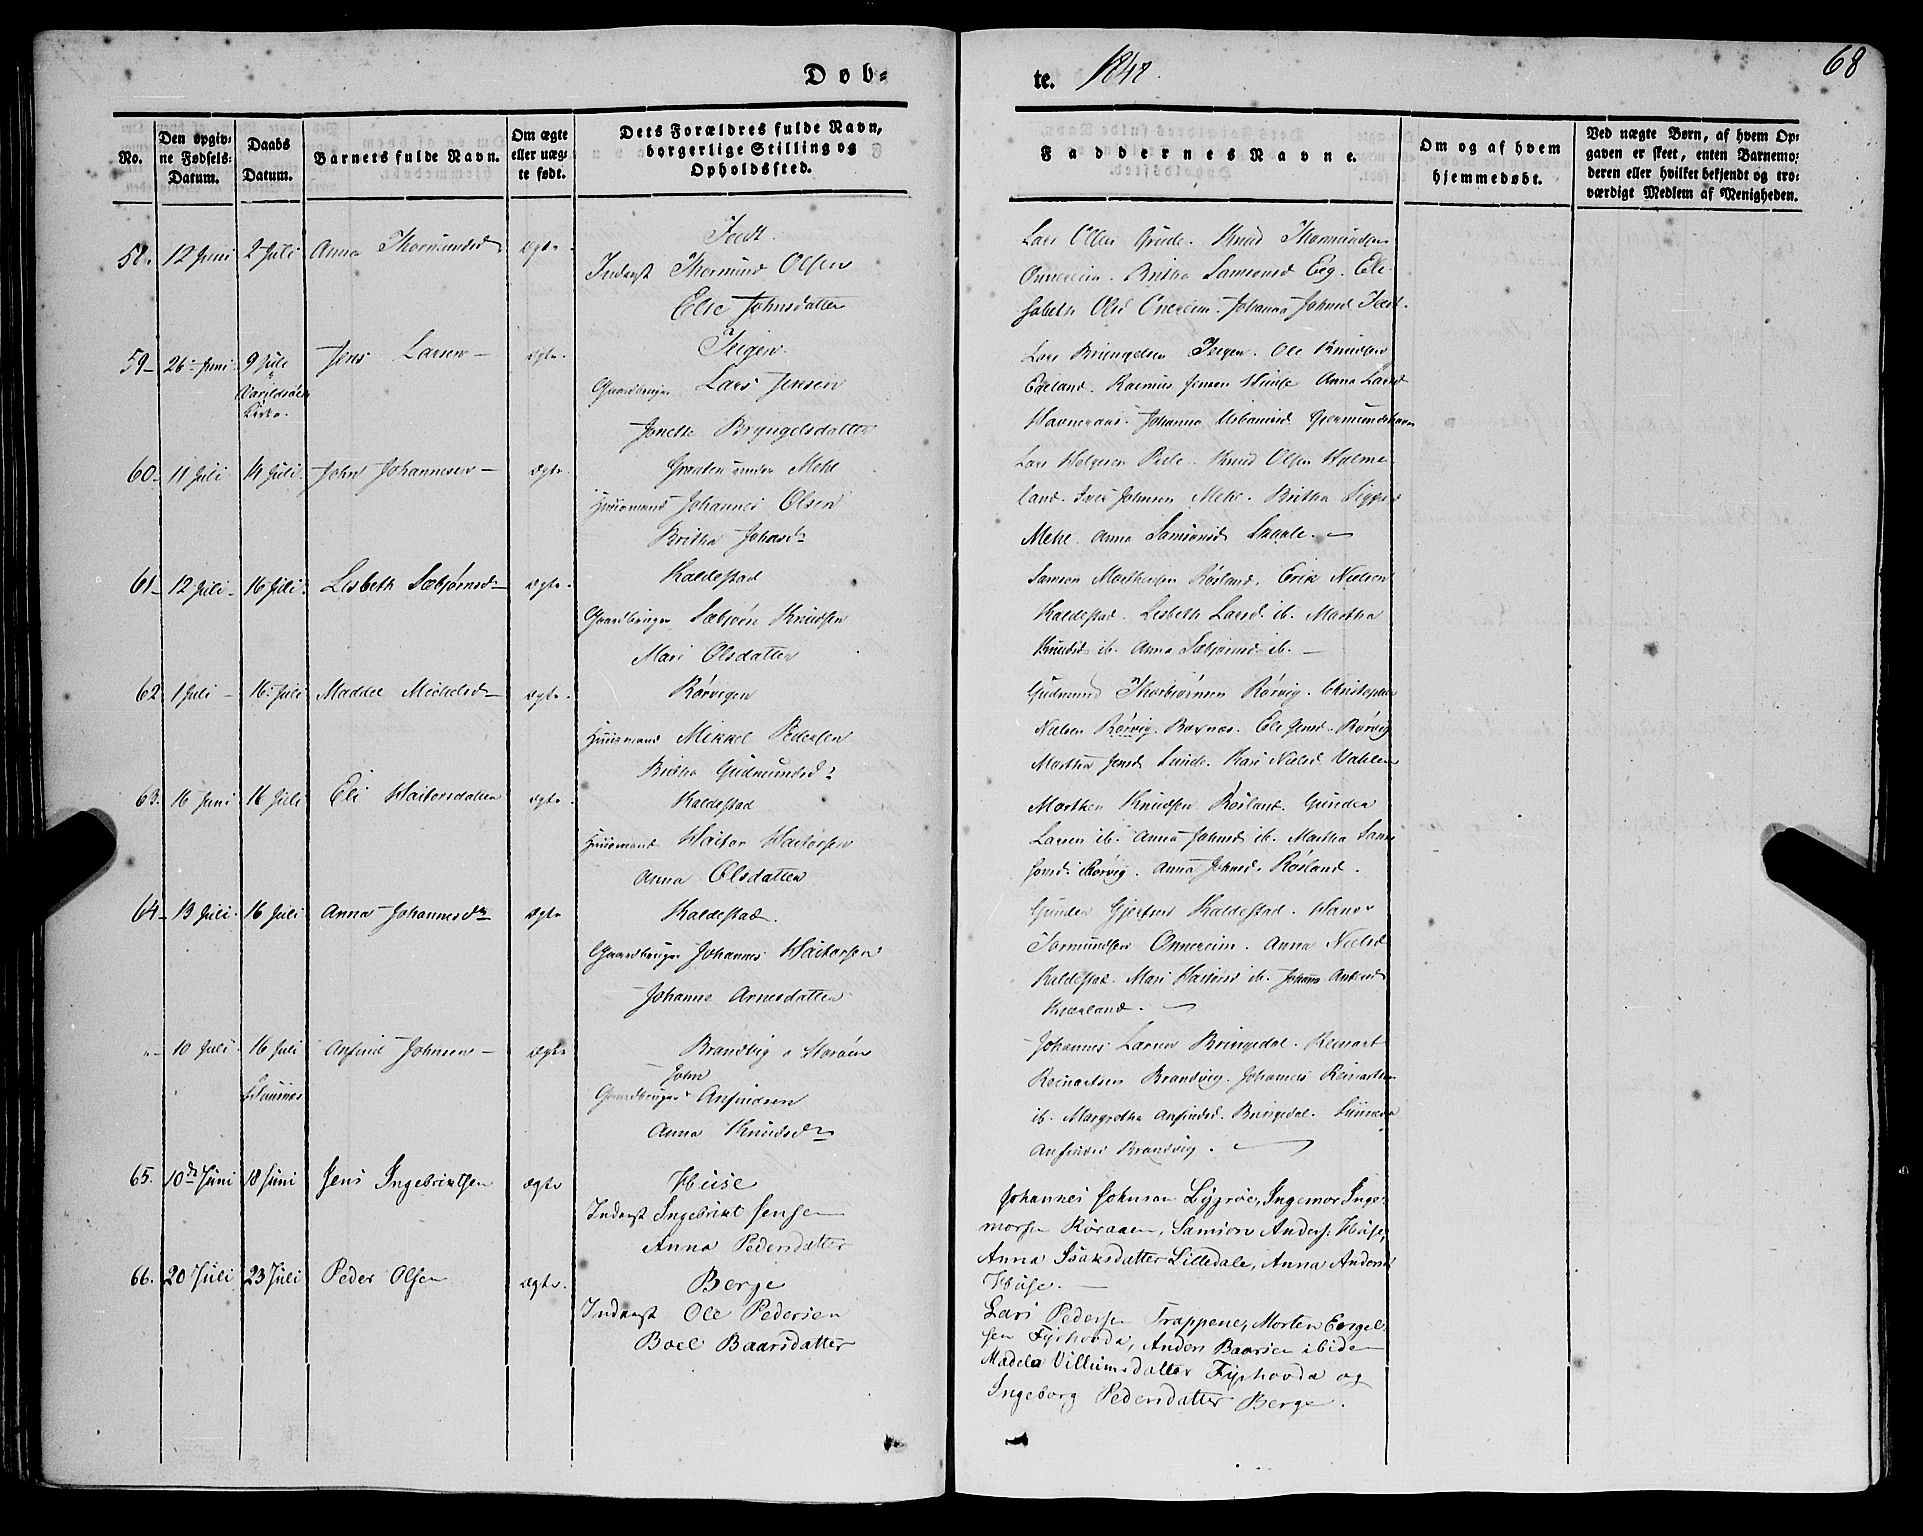 Døb=
te. 1842.
68
No.
Den opgiv=
ne Fødsels=
Datum.
Daabs
Datum.
Barnets fulde Navn.
Om ægte
eller uæg=
te født.
Dets Forældres fulde Navn,
borgerlige Stilling og
Opholdssted.
Faddernes Navne.
Om og af hvem
hjemmedøbt.
Ved uægte Børn, af hvem Op=
gaven er skeet, enten Barnemo=
deren eller hvilket bekjendt og tro=
værdigt Medlem af Menigheden.
58. 12 Juni 2 Juli Anna Thormundsd ægte
Inderst Thormund Olsen
Else Johnsdatter
Lars Olsen Grude. Knud Thormundsen
Onnereim. Britha Samsonsd Eeg. Eli-
sabeth Olsd Onereim. Johanna Johnsd
59 26 Juni 9 Juli Jens Larsen ægte
Varildsøe
Kirke.
Teigen
Gaardbruger Lars Jensen
Jonette Bryngelsdatter
Lars Bryngelsen Teigen. Ole Knudsen
Eqeland. Rasmus Jensen Anna Larsd
Havneraas. Johanna Gjermundshavn
60 11 Juli 14 Juli John Johannesen ægte
Græelen under Mehl
Huusmand Johannes Olsen
Britha Johnsd
Lars Helgesen Knud Olsen Halme-
land. Iver Johnsen Mehl. Britha
Mehl. Anna Samsonsd
61 12 Juli 16 Juli Lisbeth Sæbjørnsd ægte
Kaldestad
Gaardbruger Sæbjørn Knudsen
Mari Olsdatter
Samson Mathiasen Røsland. Erik Nielsen
Kaldestad. Lisbeth Larsd ib. Martha
Knudsd ib. Anna Sæbjørnsd ib.
62 1 Juli 16 Juli Maddel Mickelsd ægte
Rørvigen
Huusmand Mikkel Pedersen
Britha Gudmundsd
Gudmund Thorbjørnsen Rørvig. Christopher
Nielsen Rørvig. Eli Jensd Rørvig
Martha Jensd Lunde. Kari Nielsd
63. 16 Juni 16 Juli Eli Haitorsdatter ægte
Kaldestad
Huusmand Haitor Haitorsen
Anna Olsdatter
Morthen Knudsen Røsland. Gunder
Larsen ib. Anna Johnsd ib. Martha Sam-
sonsd Rørvig. Anna Johnsd. Røsland.
64 13 Juli 16 Juli Anna Johannesd ægte
Kaldestad.
Gaardbruger Johannes Haitorsen
Johanne Arnesdatter
Gunder Kaldestad. Hans
Tormundsen Onnereim. Anna Nielsd
Kaldestad. Mari Haitorsd ib.
Kjærland.
" 10 Juli 16 Juli Anfind Johnsen ægte
Brandvig Storøen
John
Gaardbruger Anfindsen
Anna Knudsd
Johannes Larsen Bringedal. Reinart
Reinartsen Brandvig. Johannes Reinartsen
ib. Margretha Anfindsd. Bringedal. Sünneva
Anfindsd Brandvig.
65. 10de Juni 18 Juni Jens Ingebrictsen ægte
Huse
Inderst Ingebrict Jensen
Anna Pedersdatter
Johannes Johnson Lygrøe, Ingemor Inge-
morsen Røraaen, Samson Anders. Huse,
Anna Isaksdatter Lilledale, Anna Andersd
Huse.
66. 20 Juli 23 Juli Peder Olsen ægte
Berge
Inderst Ole Pedersen
Boel Baarsdatter
Lars Pedersen Trappene, Morten Engel-
sen Fyxhovda, Anders Baarsen ibiden
Madela Villumsdatter Fyxhovda og
Ingeborg Pedersdatter Berge.